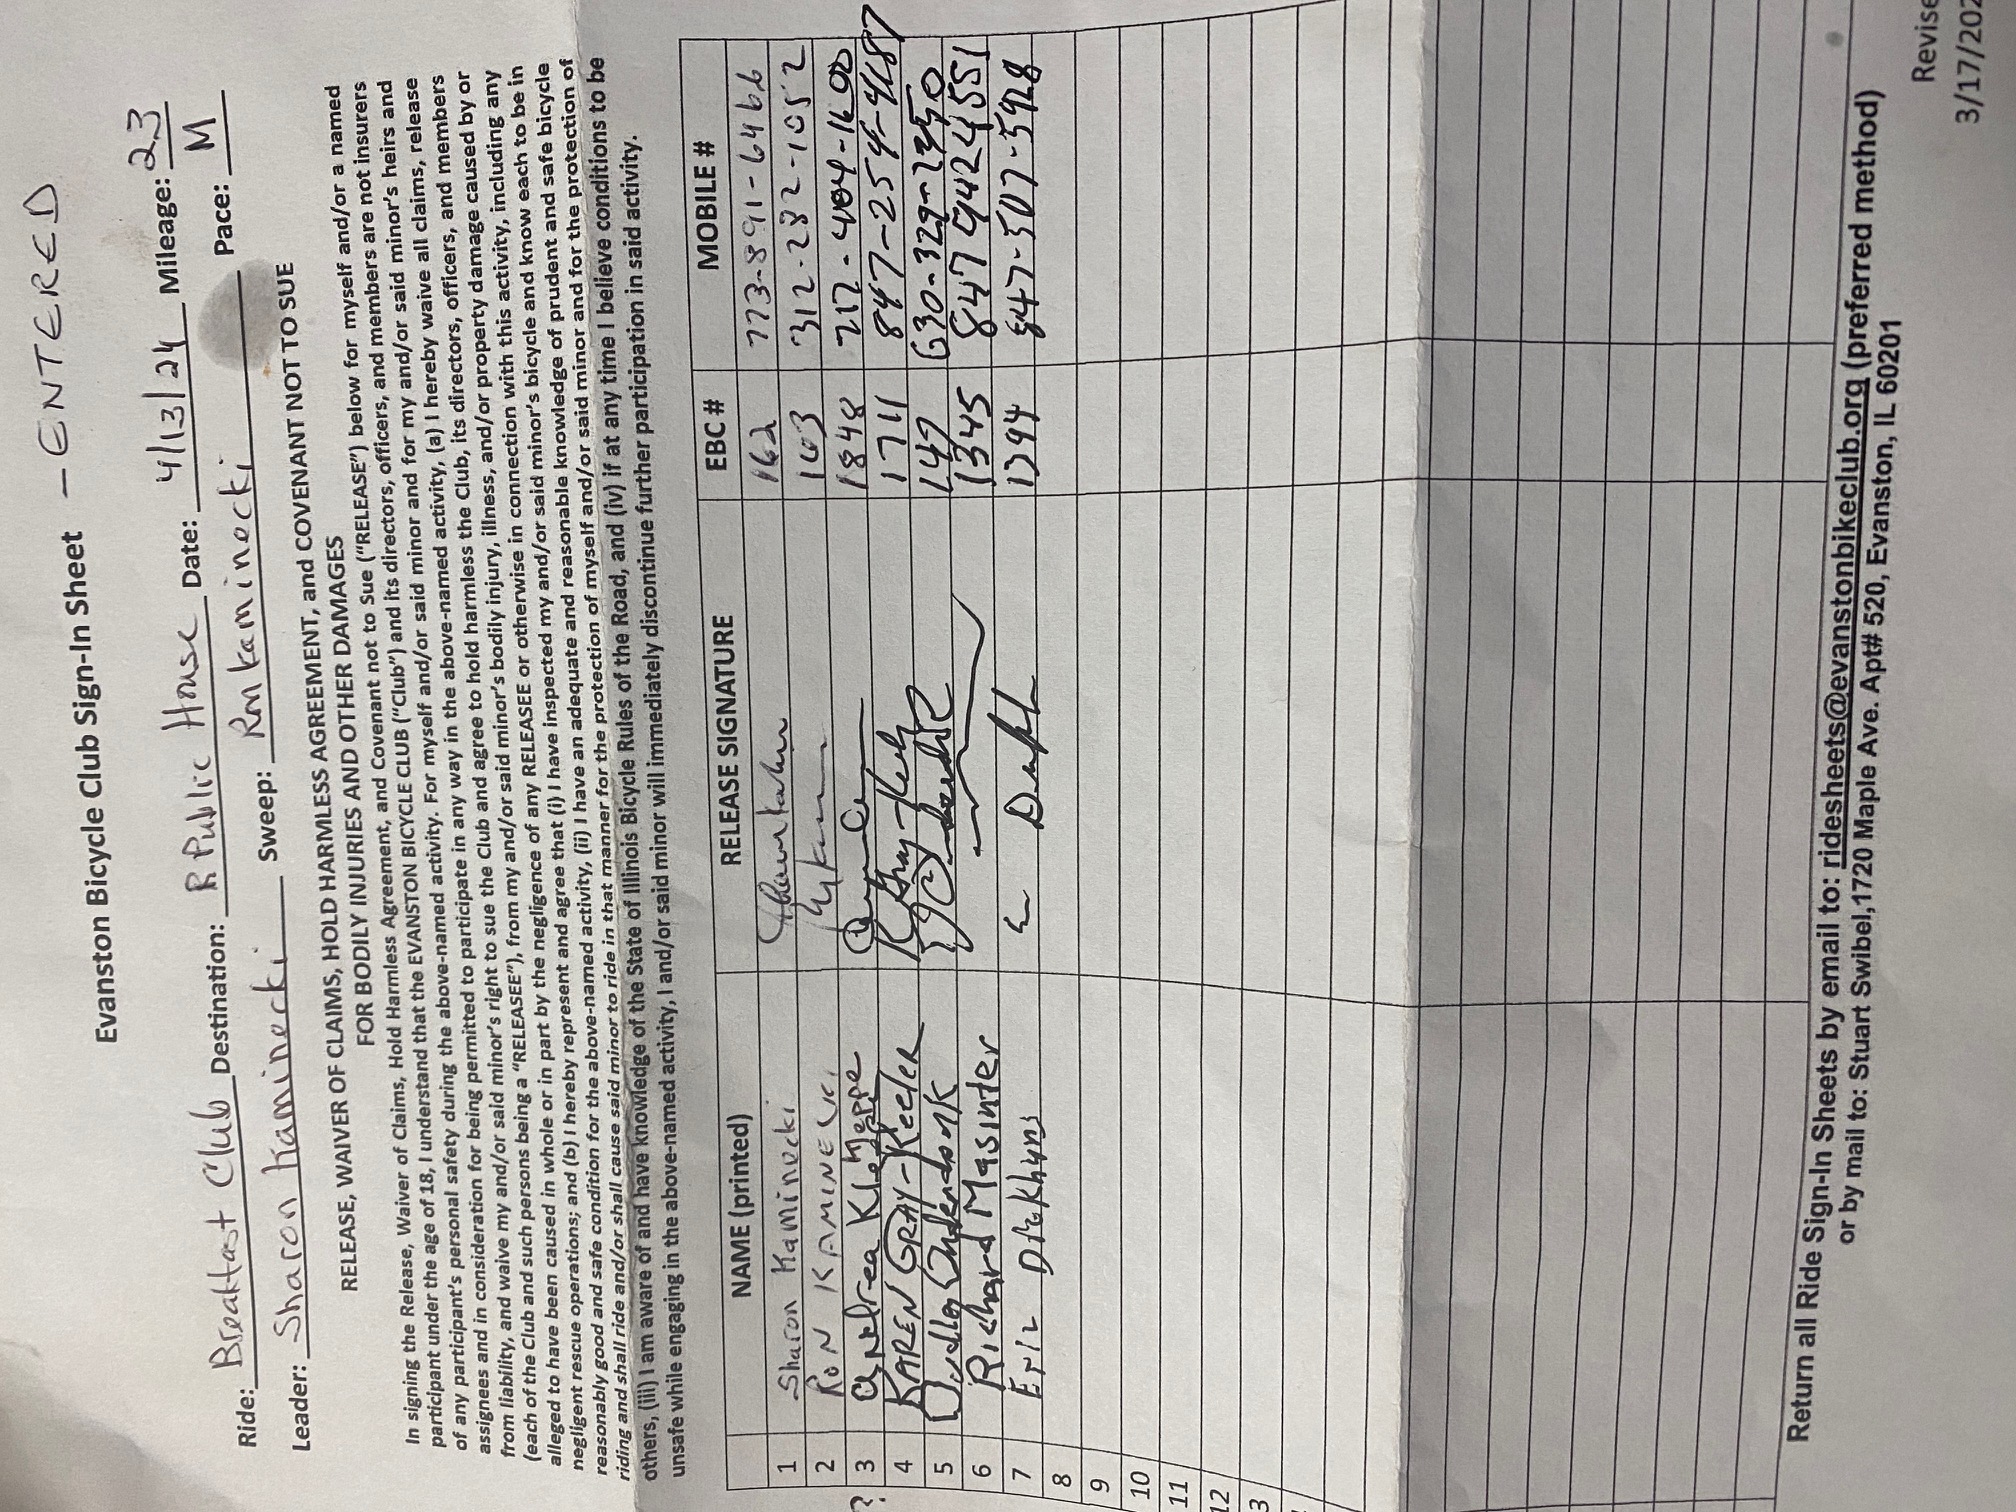 Evanston Bicycle Club Sign-In Sheet — ENTERED
Ride: Breakfast Club Destination: R Public House Date: 4/13/24 Mileage: 23
Leader: Sharon Kaminecki Sweep: Ron Kaminecki Pace: M
RELEASE, WAIVER OF CLAIMS, HOLD HARMLESS AGREEMENT, and COVENANT NOT TO SUE
FOR BODILY INJURIES AND OTHER DAMAGES
In signing the Release, Waiver of Claims, Hold Harmless Agreement, and Covenant not to Sue ("RELEASE") below for myself and/or a named
participant under the age of 18, I understand that the EVANSTON BICYCLE CLUB ("Club") and its directors, officers, and members are not insurers
of any participant's personal safety during the above-named activity. For myself and/or said minor and for my and/or said minor's heirs and
assignees and in consideration for being permitted to participate in any way in the above-named activity, (a) I hereby waive all claims, release
from liability, and waive my and/or said minor's right to sue the Club and agree to hold harmless the Club, its directors, officers, and members
(each of the Club and such persons being a "RELEASEE"), from my and/or said minor's bodily injury, illness, and/or property damage caused by or
alleged to have been caused in whole or in part by the negligence of any RELEASEE or otherwise in connection with this activity, including any
negligent rescue operations; and (b) I hereby represent and agree that (i) I have inspected my and/or said minor's bicycle and know each to be in
reasonably good and safe condition for the above-named activity, (ii) I have an adequate and reasonable knowledge of prudent and safe bicycle
riding and shall ride and/or shall cause said minor to ride in that manner for the protection of myself and/or said minor and for the protection of
others, (iii) I am aware of and have knowledge of the State of Illinois Bicycle Rules of the Road, and (iv) if at any time I believe conditions to be
unsafe while engaging in the above-named activity, I and/or said minor will immediately discontinue further participation in said activity.
NAME (printed) RELEASE SIGNATURE EBC # MOBILE #
1 Sharon Kaminecki 162 773-891-6466
2 RON KAMINECKI 163 312-282-1052
? 3 Andrea Kloeppe 1848 717-404-1600
4 KAREN GRAY-Keeler 1711 847-254-4687
5 147 630-329-2350
6 Richard Masinter 1345 847 942 4551
7 1294 847-507-5928
8
9
10
11
12
3
Return all Ride Sign-In Sheets by email to: ridesheets@evanstonbikeclub.org (preferred method)
or by mail to: Stuart Swibel,1720 Maple Ave. Apt# 520, Evanston, IL 60201
Revise
3/17/202